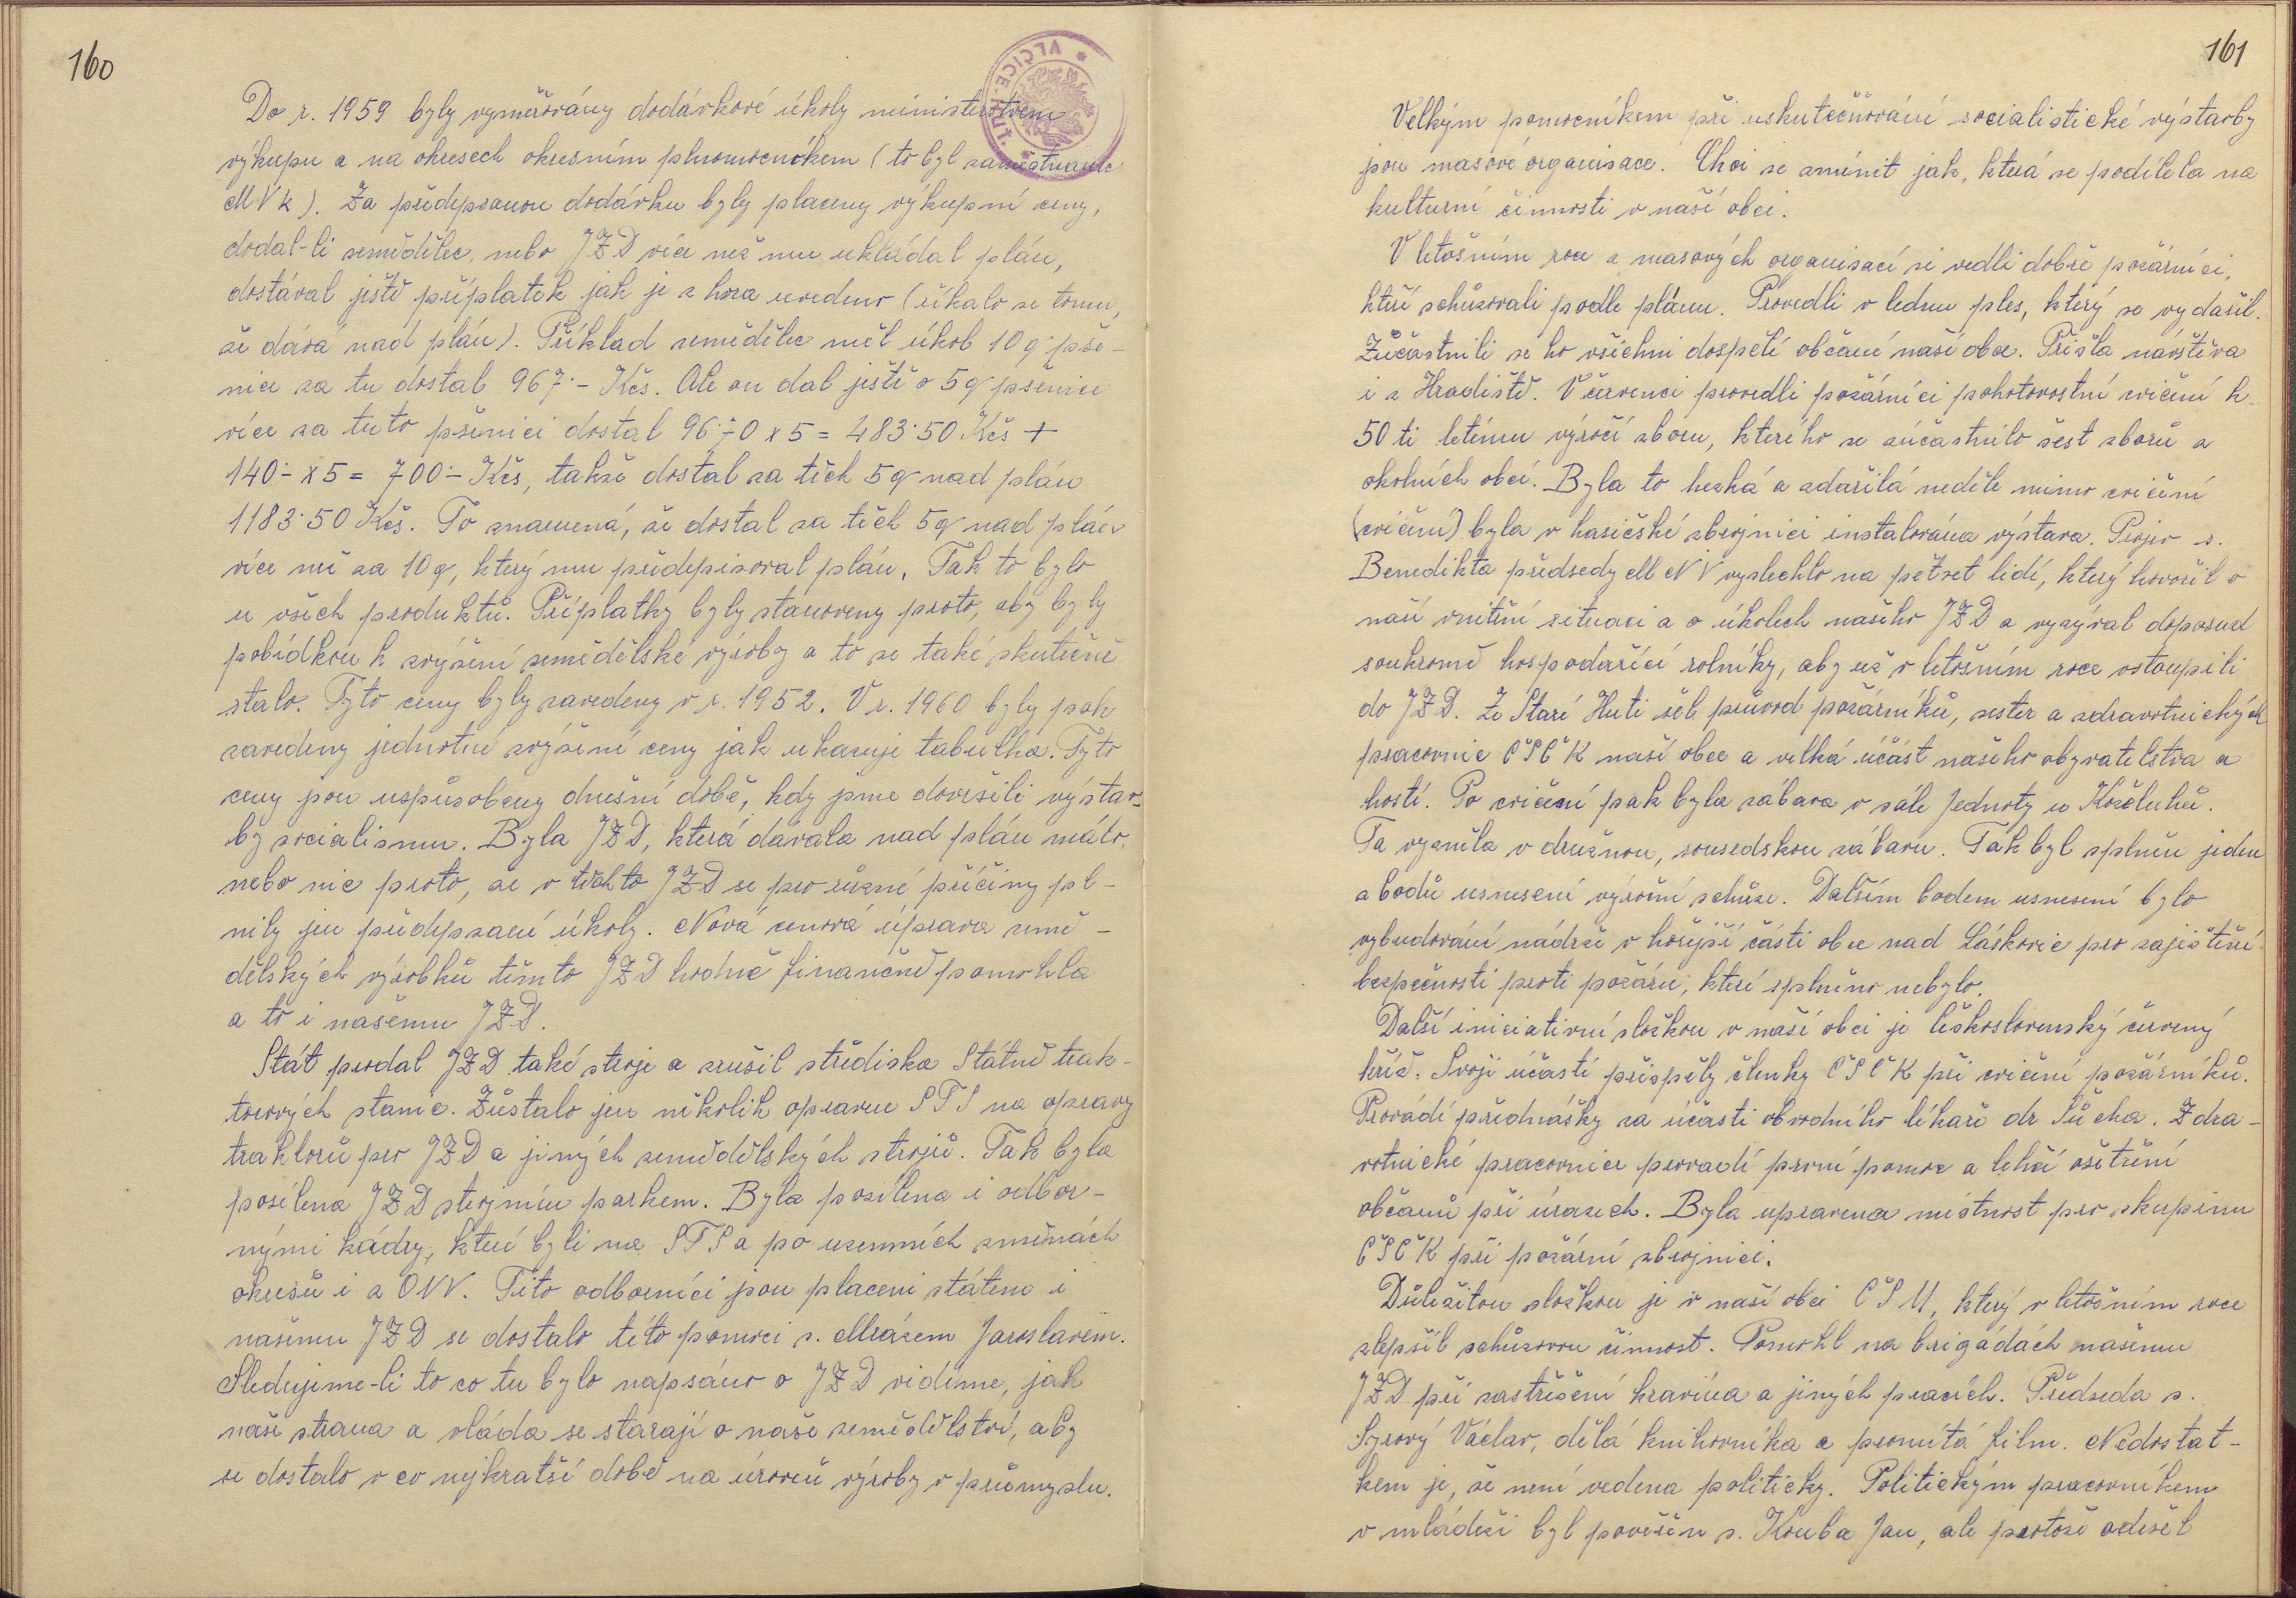 160
Do r. 1959 byly vyměřovány dodávkové úkoly ministerstvem
výkupu a na okresech okresním plnomocníkem (to byl zaměstnanec
MVk). Za předepsanou dodávku byly placeny výkupní ceny,
dodal-li zemědělec, nebo JZD více než mu ukládal plán,
dostával ještě příplatek jak je z hora uvedeno (říkalo se tomu,
že dává nad plán). Příklad zemědělec měl úkol 10 q pše-
nice za tu dostal 967·- Kčs. Ale on dal ještě o 5 q pšenice
více za tuto pšenici dostal 96·70 x 5 = 483·50 Kčs +
140·- x 5 = 700·- Kčs, takže dostal za těch 5 q nad plán
1183·50 Kčs. To znamená, že dostal za těch 5 q nad plán
více než za 10 q, který mu předepisoval plán. Tak to bylo
u všech produktů. Příplatky byly stanoveny proto, aby byly
pobídkou k zvýšení zemědělské výroby a to se také skutečně
stalo. Tyto ceny byly zavedeny v r. 1952. V r. 1960 byly pak
zavedeny jednotné zvýšené ceny jak ukazuje tabulka. Tyto
ceny jsou uspůsobeny dnešní době, kdy jsme dovršili výstav-
by socialismu. Byla JZD, která dávala nad plán málo,
nebo nic proto, že v těchto JZD se pro různé příčiny pl-
nily jen předepsané úkoly. Nová cenová úprava země-
dělských výrobků těmto JZD hodně finančně pomohla
a to i našemu JZD.
Stát prodal JZD také stroje a zrušil střediska Státně trak-
torových stanic. Zůstalo jen několik opraven STS na opravy
traktorů pro JZD a jiných zemědělských strojů. Tak byla
posílena JZD strojním parkem. Byla posílena i odbor-
nými kádry, které byli na STS a po územních změnách
okresů i z ONV. Tito odborníci jsou placeni státem i
našemu JZD se dostalo této pomoci s. Mrázem Jaroslavem.
Sledujeme-li to co tu bylo napsáno o JZD vidíme, jak
naše strana a vláda se starají o naše zemědělství, aby
se dostalo v co nejkratší době na úroveň výroby v průmyslu.
161
Velkým pomocníkem při uskutečňování socialistické výstavby
jsou masové organisace. Chci se zmínit jak, která se podílela na
kulturní činnosti v naší obci.
V letošním roce z masových organisací si vedli dobře požárníci,
kteří schůzovali podle plánu. Provedli v lednu ples, který se vydařil.
Zúčastnili se ho všichni dospělí občané naší obce. Přišla návštěva
i z Hradiště. V červenci provedli požárníci pohotovostní cvičení k
50 ti letému výročí sboru, kterého se zúčastnilo šest sborů z
okolních obcí. Byla to hezká a zdařilá neděle mimo cvičení
(cvičení) byla v hasičské zbrojnici instalována výstava. Projev s.
Benedikta předsedy MNV vyslechlo na pětset lidí, který hovořil o
naší vnitřní situaci a o úkolech našeho JZD a vyzýval doposud
soukromě hospodařící rolníky, aby už v letošním roce vstoupili
do JZD. Ze Staré Huti šel průvod požárníků, sester a zdravotnických
pracovnic ČSČK naší obce a velká účast našeho obyvatelstva a
hostí. Po cvičení pak byla zábava v sále Jednoty u Koželuhů.
Ta vyzněla v družnou, sousedskou zábavu. Tak byl splněn jeden
z bodů usnesení výroční schůze. Dalším bodem usnesení bylo
vybudování nádrže v hořejší části obce nad Láskovic pro zajištění
bezpečnosti proti požáru, které splněno nebylo.
Další iniciativní složkou v naší obci je Československý červený
kříž. Svojí účastí přispěly členky ČSČK při cvičení požárníků.
Provádí přednášky za účasti obvodního lékaře dr Sucha. Zdra-
votnické pracovnice provadí první pomoc a lehčí ošetření
občanů při úrazech. Byla upravena místnost pro skupinu
ČSČK při požární zbrojnici.
Důležitou složkou je v naší obci ČSM, který v letošním roce
zlepšil schůzovou činnost. Pomohl na brigádách našemu
JZD při zastřešení kravína a jiných pracích. Předseda s.
Syrový Václav, dělá knihovníka a promítá film. Nedostat-
kem je, že není vedena politicky. Politickým pracovníkem
v mládeži byl pověřen s. Kouba Jan, ale protože odešel